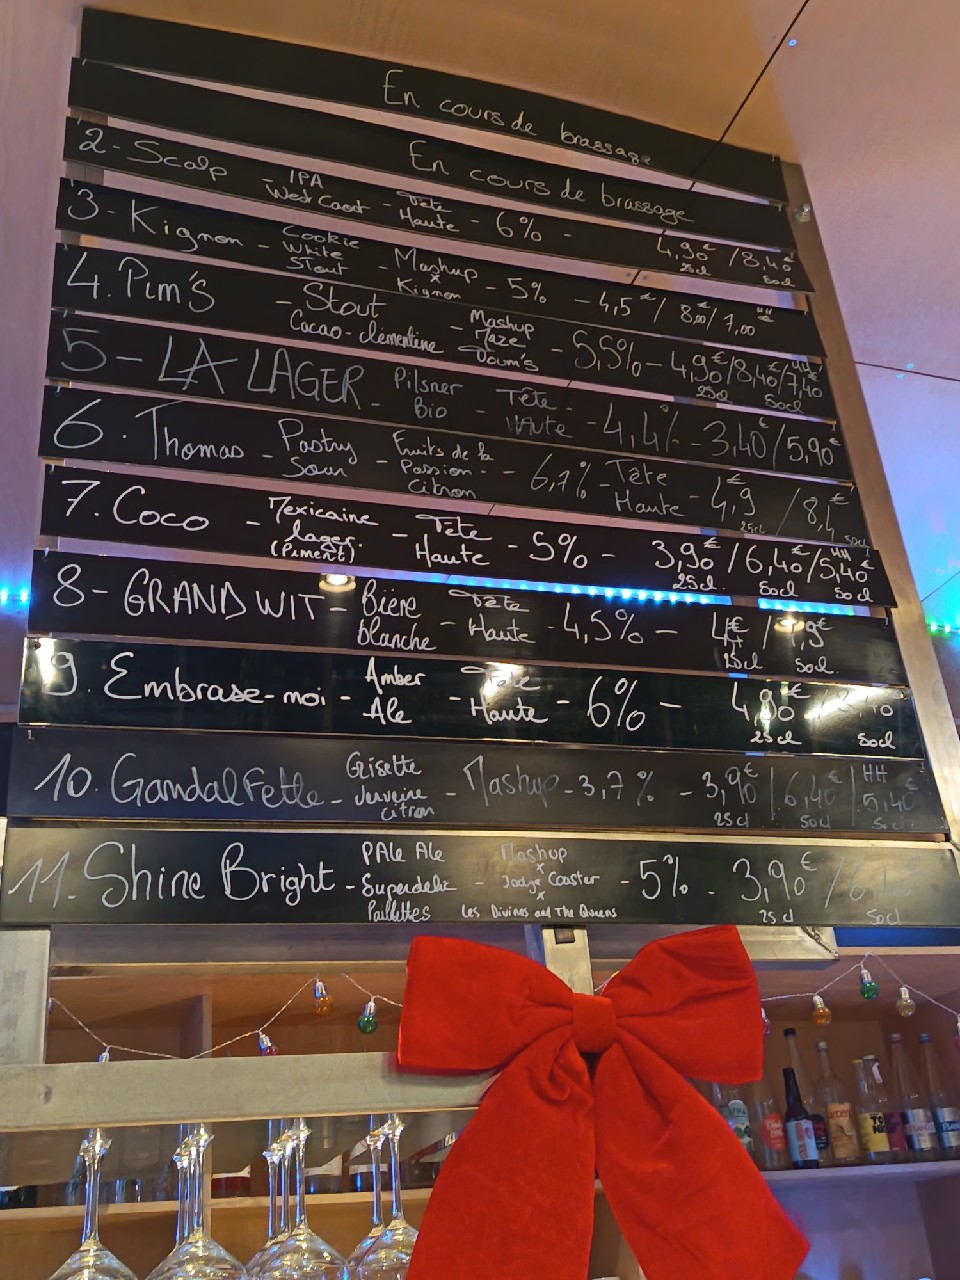 En cours de brassage
En cours de brassage
2-Scalp - IPA West Coast - Tête Haute - 6% - 4,90€ 25cl / 8,40€ 50cl
3-Kignon - Cookie White Stout - Mashup x Kignon - 5% - 4,5€ / 8,00€ / 7,00€ HH
4. Pim's - Stout Cacao-clémentine - Mashup Maze Doum's - 5,5% - 4,90€ 25cl / 8,40€ / 7,40 HH 50cl
5 - LA LAGER - Pilsner Bio - Tête Haute - 4,4% - 3,40€ / 5,90€
6. Thomas - Pastry Sour - Fruits de la Passion - citron - 6,7% - Tête Haute - 4,9€ 25cl / 8,4€ 50cl
7. Coco - Mexicaine lager (Piment) - Tête Haute - 5% - 3,90€ 25cl / 6,40€ 50cl / HH 5,40€ 50cl
8 - GRAND WIT - Bière blanche - Tête Haute - 4,5% - 4€ 25cl / 50cl
9. Embrase-moi - Amber Ale - Tête Haute - 6% - 4,90€ 25cl / 50cl
10. GandalFette - Grisette verveine citron - Mashup - 3,7% - 3,90€ 25cl / 6,40€ 50cl / HH 5,40€ 50cl
11. Shine Bright - PAle Ale Superdelic Paillettes - Mashup x Jodge Coaster x Les Divines and The Queens - 5% - 3,90€ 25cl / 50cl